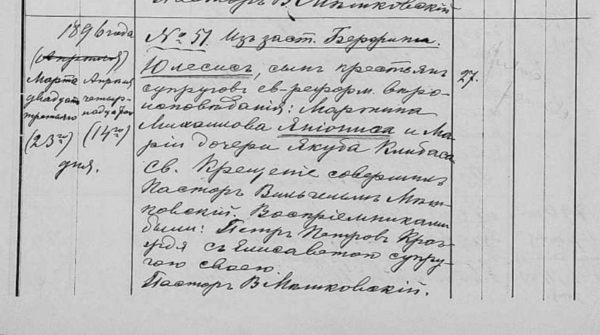 Пасторъ В. Мѣшковскій
1896 года
(Апрѣля)
Марта
двадцать
третьяго
(23го)
дня.
Апрѣля
четыр-
надцат
(14го)
№ 51. Изъ заст.
Юлесисъ, сынъ крестьян
супруговъ ев.-реформ. вѣро-
исповѣданія: Мартина
Михайлова Янсониса и Ма-
ріи дочери Якуба
Св. Крещеніе совершилъ
Пасторъ Вильгельмъ Мѣш-
ковскій. Воспріемниками
были: Петръ Петровъ
съ Елисаветою супру-
гою своею.
Пасторъ В. Мѣшковскій.
27.